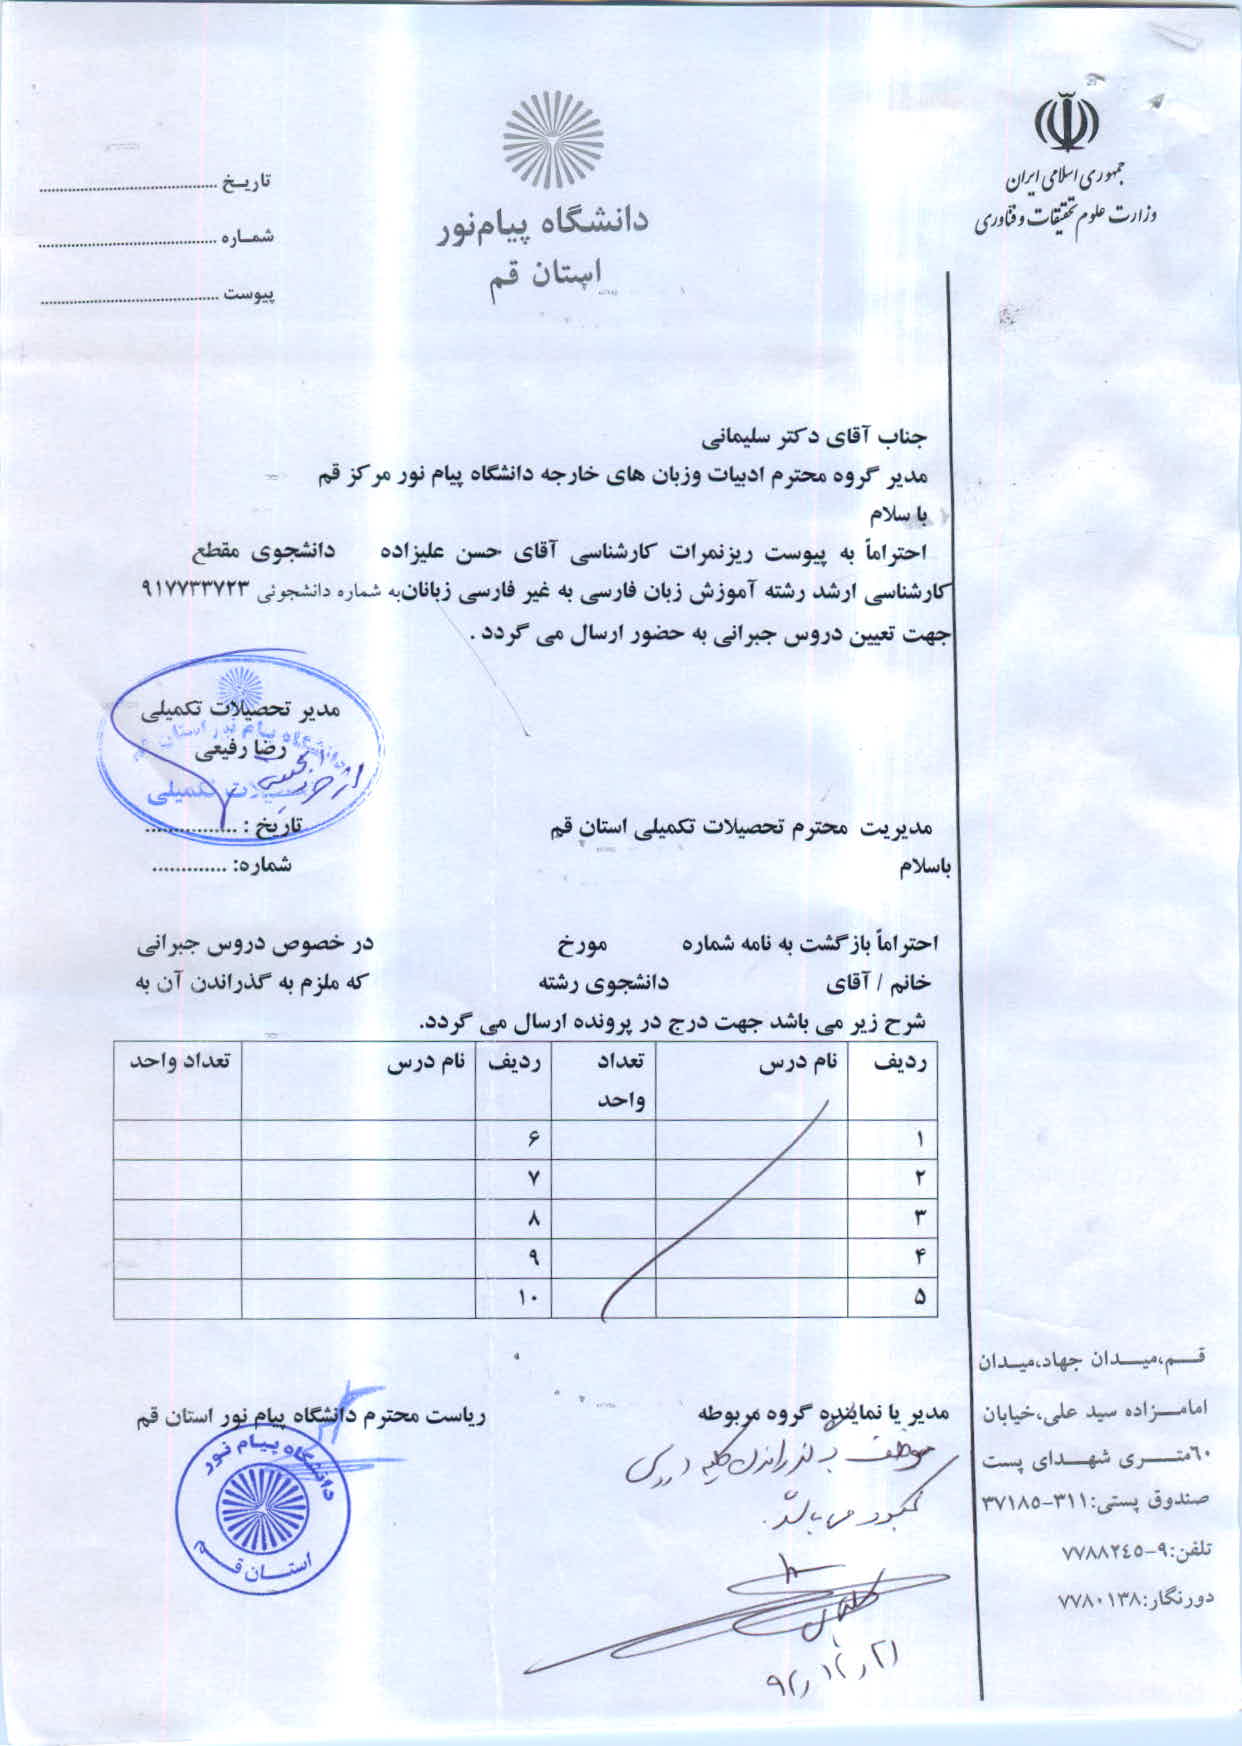 جمهوری اسلامی ایران
وزارت علوم تحقیقات و فناوری
دانشگاه پیام‌نور
استان قم
تاریخ ........................................
شماره ........................................
پیوست ........................................
جناب آقای دکتر سلیمانی
مدیر گروه محترم ادبیات وزبان های خارجه دانشگاه پیام نور مرکز قم
با سلام
احتراماً به پیوست ریزنمرات کارشناسی آقای حسن علیزاده دانشجوی مقطع
کارشناسی ارشد رشته آموزش زبان فارسی به غیر فارسی زبانان به شماره دانشجوئی ۹۱۷۷۳۳۷۲۳
جهت تعیین دروس جبرانی به حضور ارسال می گردد .
مدیر تحصیلات تکمیلی
رضا رفیعی
دانشگاه پیام نور استان قم
تحصیلات تکمیلی
تاریخ : ................
شماره: .............
مدیریت محترم تحصیلات تکمیلی استان قم
باسلام
احتراماً بازگشت به نامه شماره مورخ در خصوص دروس جبرانی
خانم / آقای دانشجوی رشته که ملزم به گذراندن آن به
شرح زیر می باشد جهت درج در پرونده ارسال می گردد.
ردیف نام درس تعداد واحد ردیف نام درس تعداد واحد
۱ ۶
۲ ۷
۳ ۸
۴ ۹
۵ ۱۰
مدیر یا نماینده گروه مربوطه
ریاست محترم دانشگاه پیام نور استان قم
موظف به گذراندن کلیه دروس
کمبود می باشد.
۹۲/۱۲/۲۱
دانشگاه پیام نور
استان قم
قم،میدان جهاد،میدان
امامزاده سید علی،خیابان
۶۰متری شهدای پست
صندوق پستی:۳۱۱-۳۷۱۸۵
تلفن:۹-۷۷۸۸۲٤۵
دورنگار:۷۷۸۰۱۳۸